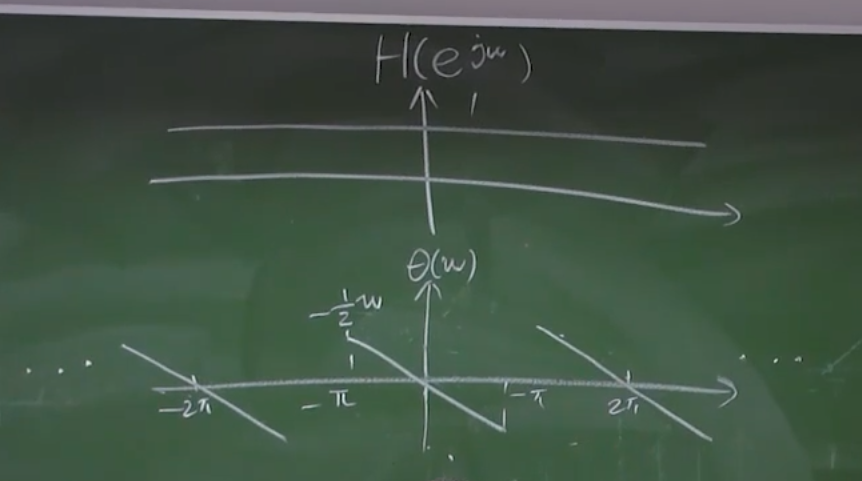 H(e^{jω})
1
θ(ω)
-\frac{1}{2}ω
....
....
-2π
-π
-π
2π